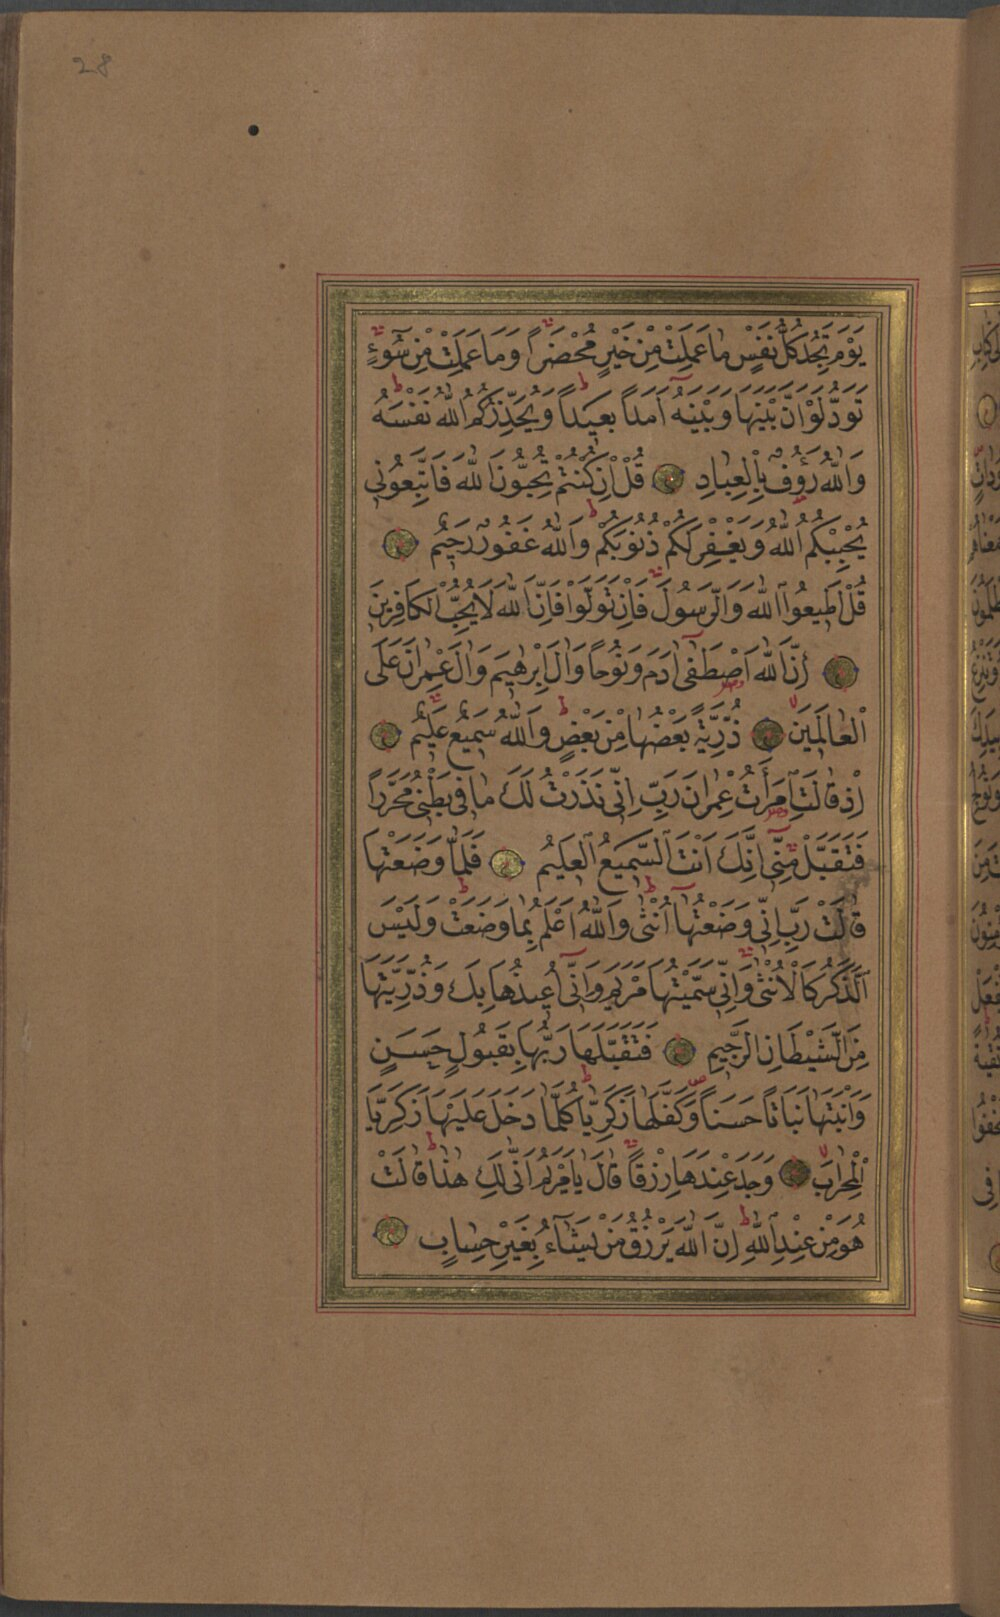 28
يَوْمَ تَجِدُ كُلُّ نَفْسٍ مَا عَمِلَتْ مِنْ خَيْرٍ مُحْضَرًا وَمَا عَمِلَتْ مِنْ سُوٓءٍ
تَوَدُّ لَوْ اَنَّ بَيْنَهَا وَبَيْنَهُٓ اَمَدًا بَعِيدًا وَيُحَذِّرُكُمُ اللّٰهُ نَفْسَهُ
وَاللّٰهُ رَؤُفٌ بِالْعِبَادِ قُلْ اِنْ كُنْتُمْ تُحِبُّونَ اللّٰهَ فَاتَّبِعُونِى
يُحْبِبْكُمُ اللّٰهُ وَيَغْفِرْ لَكُمْ ذُنُوبَكُمْ وَاللّٰهُ غَفُورٌ رَحِيمٌ
قُلْ اَطِيعُوا اللّٰهَ وَالرَّسُولَ فَاِنْ تَوَلَّوْا فَاِنَّ اللّٰهَ لَا يُحِبُّ الْكَافِرِينَ
اِنَّ اللّٰهَ اصْطَفٰىٓ اٰدَمَ وَنُوحًا وَاٰلَ اِبْرٰهِيمَ وَاٰلَ عِمْرٰنَ عَلَى
الْعَالَمِينَ ذُرِّيَّةً بَعْضُهَا مِنْ بَعْضٍ وَاللّٰهُ سَمِيعٌ عَلِيمٌ
اِذْ قَالَتِ امْرَأَتُ عِمْرَانَ رَبِّ اِنِّى نَذَرْتُ لَكَ مَا فِى بَطْنِى مُحَرَّرًا
فَتَقَبَّلْ مِنِّىٓ اِنَّكَ اَنْتَ السَّمِيعُ الْعَلِيمُ فَلَمَّا وَضَعَتْهَا
قَالَتْ رَبِّ اِنِّى وَضَعْتُهَآ اُنْثٰى وَاللّٰهُ اَعْلَمُ بِمَا وَضَعَتْ وَلَيْسَ
الذَّكَرُ كَالْاُنْثٰى وَاِنِّى سَمَّيْتُهَا مَرْيَمَ وَاِنِّىٓ اُعِيذُهَا بِكَ وَذُرِّيَّتَهَا
مِنَ الشَّيْطَانِ الرَّجِيمِ فَتَقَبَّلَهَا رَبُّهَا بِقَبُولٍ حَسَنٍ
وَاَنْبَتَهَا نَبَاتًا حَسَنًا وَكَفَّلَهَا زَكَرِيَّا كُلَّمَا دَخَلَ عَلَيْهَا زَكَرِيَّا
الْمِحْرَابَ وَجَدَ عِنْدَهَا رِزْقًا قَالَ يَا مَرْيَمُ اَنّٰى لَكِ هٰذَا قَالَتْ
هُوَ مِنْ عِنْدِ اللّٰهِ اِنَّ اللّٰهَ يَرْزُقُ مَنْ يَشَٓاءُ بِغَيْرِ حِسَابٍ